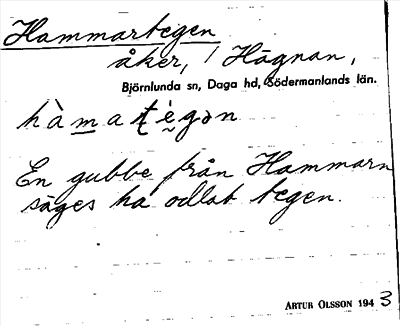 Hammartegen
åker, / Hägnan,
Björnlunda sn, Daga hd, Södermanlands län.
hàmatègən
En gubbe från Hammarn
säges ha odlat tegen.
ARTUR OLSSON 1943